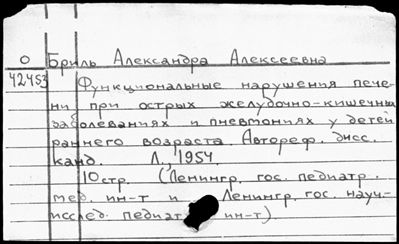 О Бриль Александра Алексеевна
42453 Функциональные нарушения пече-
ни при острых желудочно-кишечных
заболеваниях и пневмониях у детей
раннего возраста. Автореф. дисс.
канд. Л., 1954.
10 стр. (Ленингр. гос. педиатр.
мед. ин-т и Ленингр. гос. науч.-
исслед. педиат ин-т).